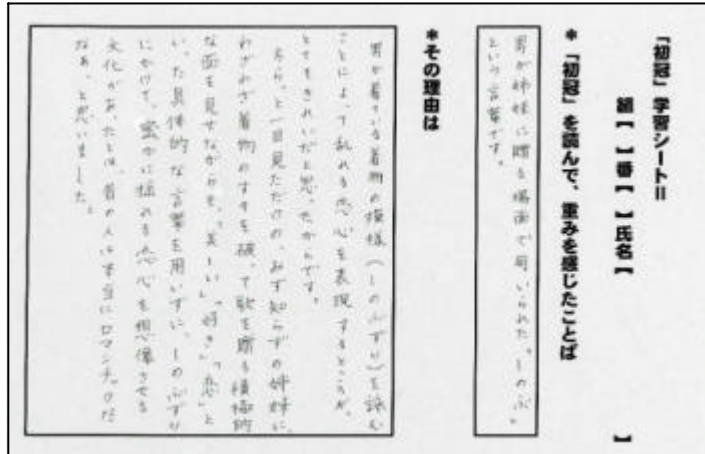 「初冠」学習シートⅡ
組】【番】【氏名】 】
＊「初冠」を読んで、重みを感じたことば
男が姉妹に贈る場面で用いられた「しのぶ」
という言葉です。
＊その理由は
男が着ている着物の模様（しのぶずり）を詠む
ことによって乱れる恋心を表現するところが、
とてもきれいだと思ったからです。
ちらっと一目見ただけの、みず知らずの姉妹に、
わざわざ着物のすそを破って歌を贈る積極的
な面を見せながらも、「美しい」「好き」「恋」と
いった具体的な言葉を用いずに、しのぶずり
にかけて、密かに揺れる恋心を想像させる
文化があったとは、昔の人は本当にロマンチックだ
なぁ、と思いました。